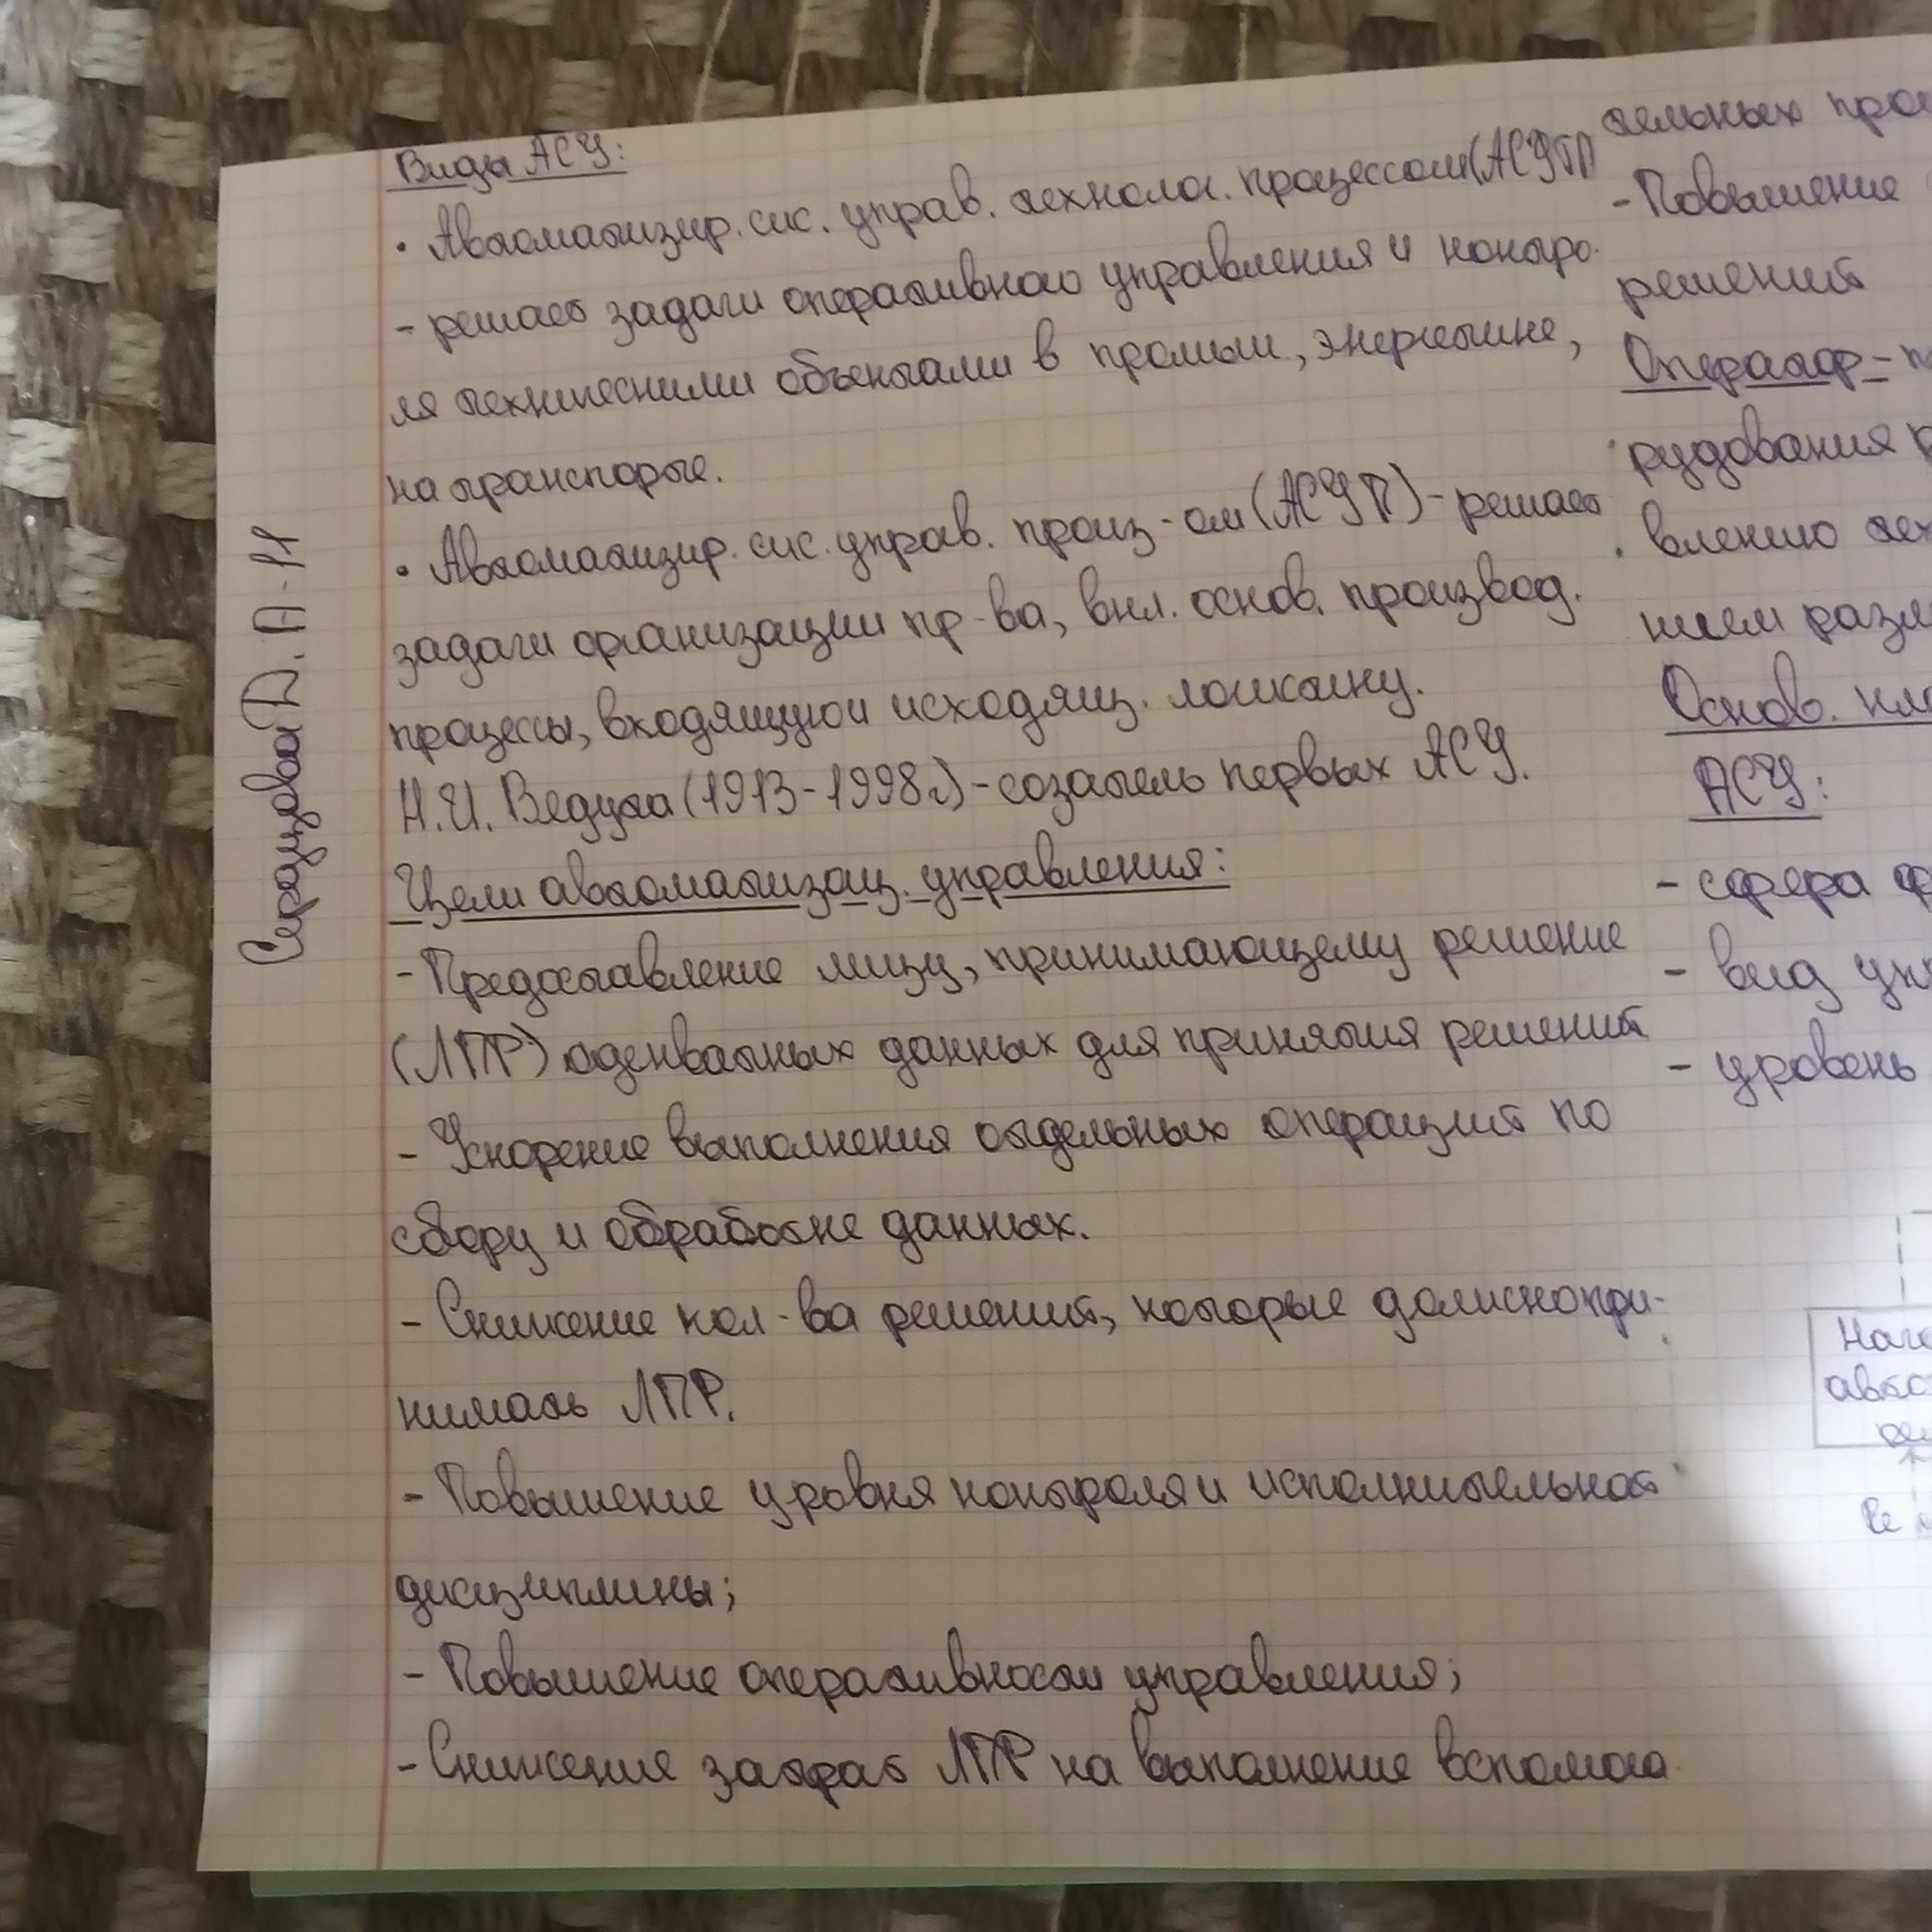 Виды АСУ:
• Автоматизир. сис. управ. технолог. процессом (АСУТП
- решает задачи оперативного управления и контро-
ля техническими объектами в промыш, энергетике,
на транспорте.
• Автоматизир. сис. управ. произ-ом (АСУП) - решает
задачи организации пр-ва, вкл. основ. производ.
процессы, входящую и исходящ. логистику.
Н.И. Ведута (1913-1998г) - созатель первых АСУ.
Цели автоматизац. управления:
- Предоставление лицу, принимающему решение
(ЛПР) адекватных данных для принятия решений
- Ускорение выполнения отдельных операций по
сбору и обработке данных.
- Снижение кол-ва решений, которые должно при-
нимать ЛПР.
- Повышение уровня контроля и исполнительной
дисциплины;
- Повышение оперативности управления;
- Снижение затрат ЛПР на выполнение вспомога
тельных про
- Повышение
решений
Оператор - п
рудования р
влению тех
нием разл
Основ. кла
АСУ:
- сфера ф
- вид уп
- уровень